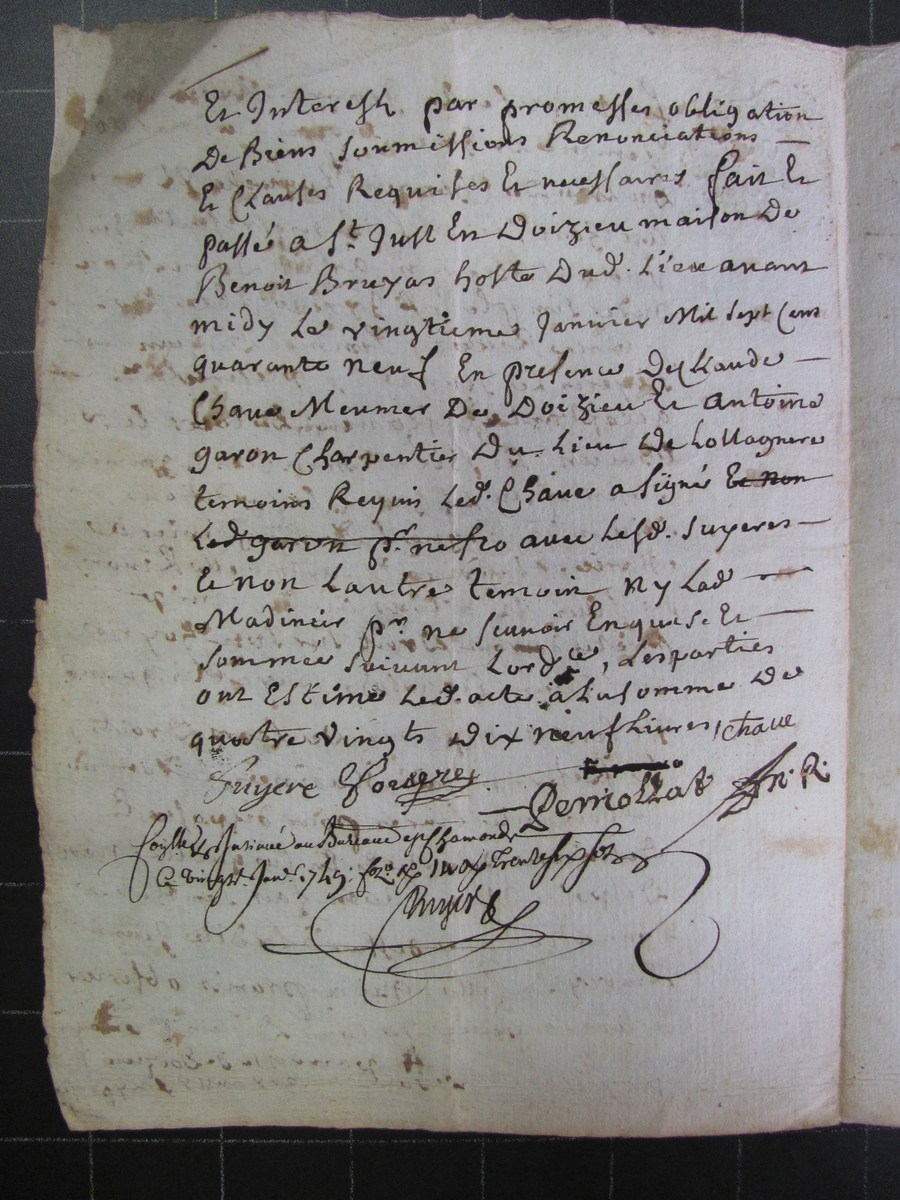 Et Interesh par promesses obligation
De Biens soumissions Renonciations —
Et Clauses Requises Et necessaires fait Et
passé a St. Just En Doizieu maison de
Benoit Bruyas hoste Dud. Lieu avant
midy le vingtieme Janvier Mil sept Cens
quarante neuf En presence De Claude —
Chave Meunier De Doizieu Et antoine
garon Charpentier Du Lieu De
temoins Requis Led. Chave a signé Et non
Led. garon pr. avec Lesd. suyeres —
Et non Lautre temoin ny Lad —
Madinier pr. ne scavoir Enquise Et —
sommée suivant Lordce, Les parties
ont Estimé Led. acte a la somme de
quatre vingts dix neuf Livres, Chave
Suyere
Pemollat N. R.
Insinué au Bureau de St Chamond
Ce vingt Janv. 1749.